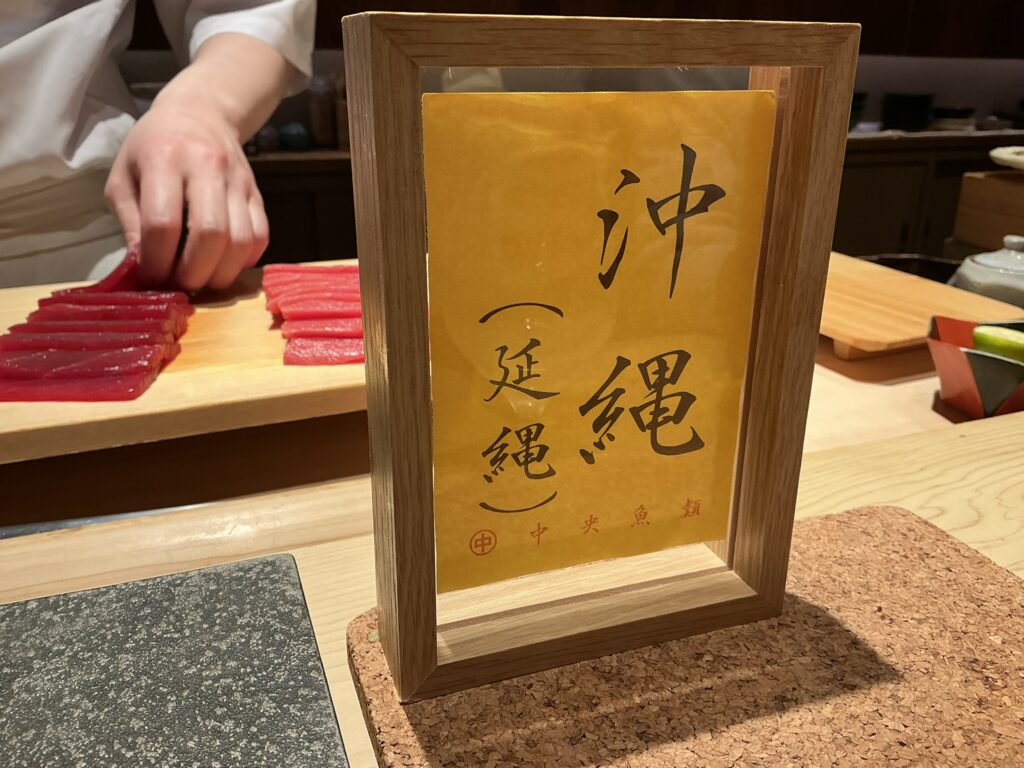 沖縄
（延縄）
㊥中央魚類